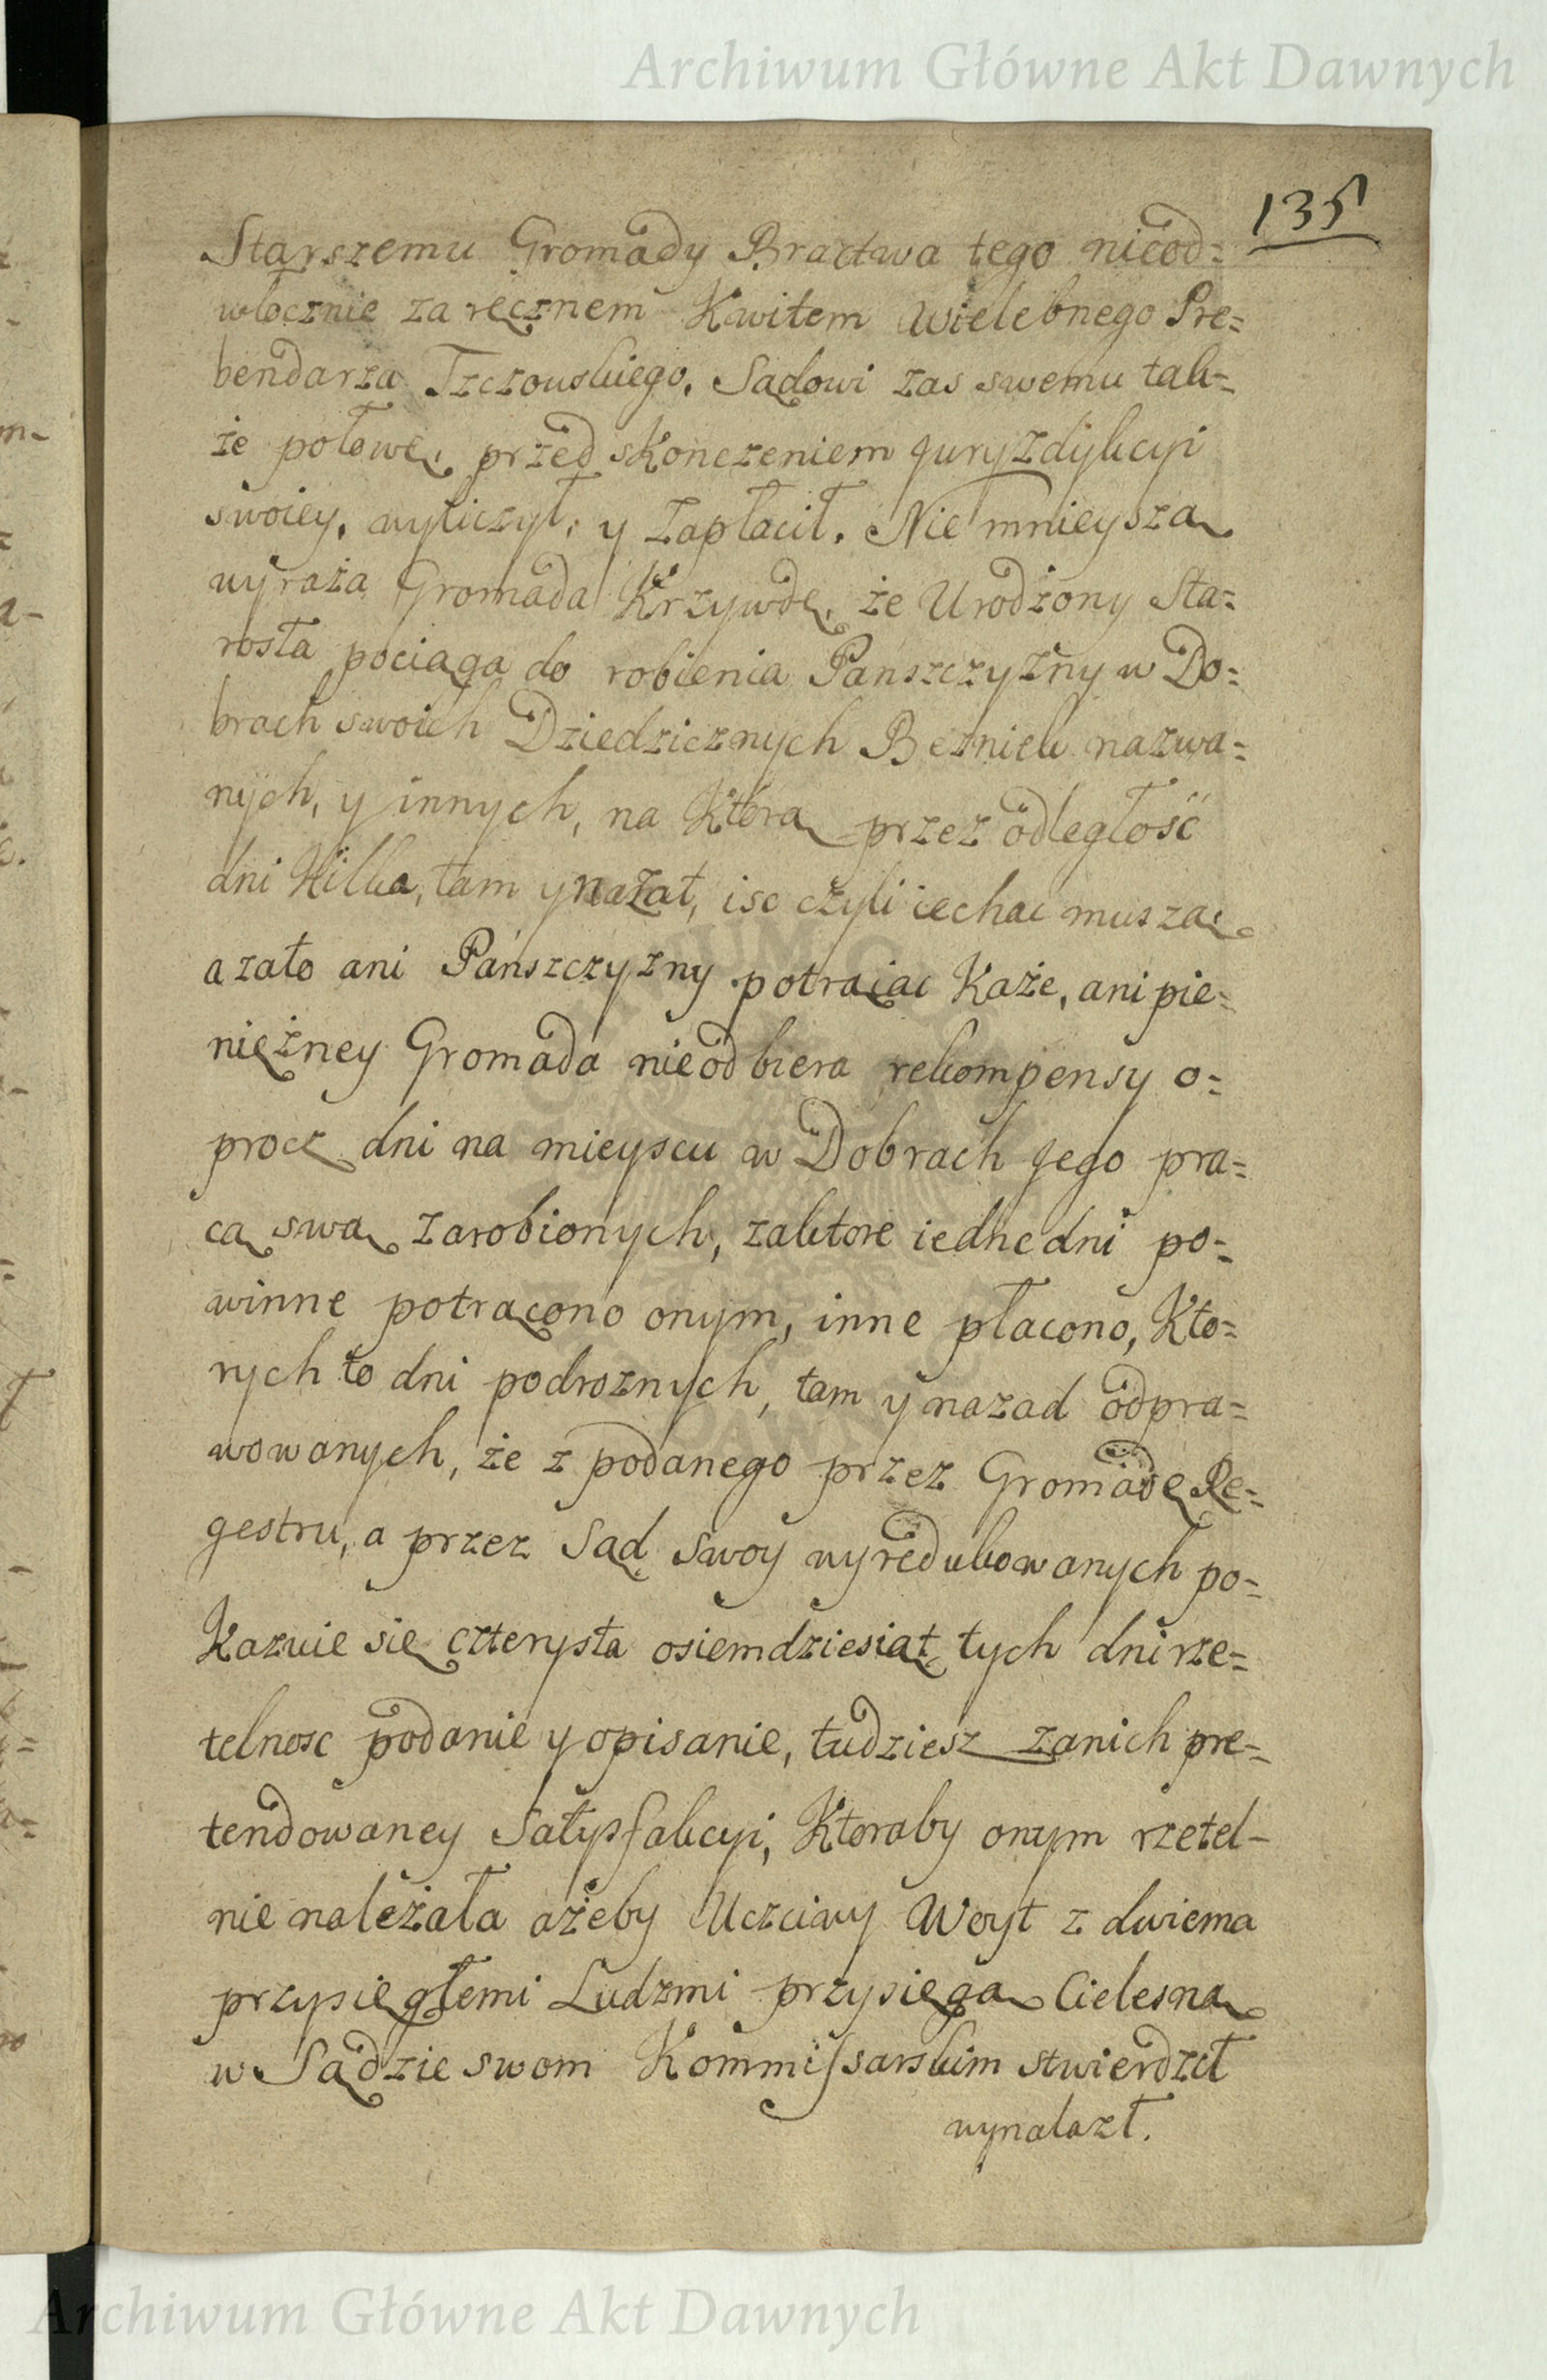 Archiwum Główne Akt Dawnych
135
Starszemu Gromady Bractwa tego nieod=
włocznie za ręcznem Kwitem Wielebnego Pre=
bendarza Tzczouskiego. Sądowi zas swemu tak=
że połowę, przed skonczeniem Juryzdykcyi
swoiey, wyliczył, y zapłacił. Nie mnieyszą
wyraża Gromada Krzywdę, że Urodzony Sta=
rosta pociąga do robienia Panszczyzny w Do=
brach swoich Dziedzicznych Beznick nazwa=
nych, y innych, na Ktorą przez odległość
dni Kilka, tam y nazat, isc czyli iechac muszą
a zato ani Pańszczyzny potrącac Każe, ani pie=
niężney Gromada nieodbiera rekompensy o=
procz dni na mieyscu w Dobrach Jego pra=
cą swą zarobionych, zaktore iedne dni po=
winne potrącono onym, inne płacono, Kto=
rych to dni podroznych, tam y nazad odpra=
wowanych, że z podanego przez Gromadę Re=
gestru, a przez Sąd Swoy wyredukowanych po=
Kazuie się czterysta osiemdziesiąt tych dni rze=
telnosc podanie y opisanie, tudziesz zanich pre=
tendowaney Satysfakcyi, Ktoraby onym rzetel-
nie należała ażeby Uczciwy Woyt z dwiema
przysięgłemi Ludzmi przysięgą Cielesną
w Sądzie swom Kommissarskim stwierdzeł
wynalazł.
Archiwum Główne Akt Dawnych